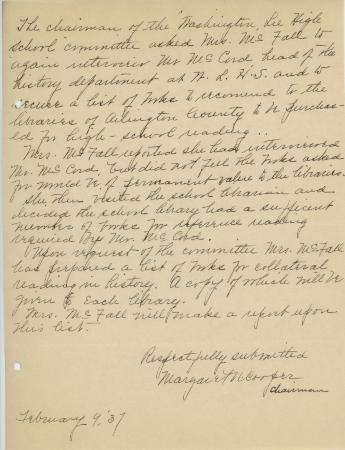 The chairman of the "Washington, Lee High
school committee asked Mrs. McFall to
again interview Mr McCord head of the
history department at W. L. H. S. and to
secure a list of books to recomend to the
libraries of Arlington County to be purchas-
ed for high-school reading..
Mrs. McFall reported she had interviewed
Mr. McCord, but did not feel the books asked
for would be of permanent value to the libraries.
She then visited the school librarian and
decided the school library had a sufficient
number of books for reference reading
required by Mr. McCord.
Upon request of the committee Mrs. McFall
has prepared a list of books for collateral
reading in history. A copy of which will be
given to each library.
Mrs. McFall will make a report upon
this list.
Respectfully submitted
Margaret N Cooper
chairman
February 9, '37